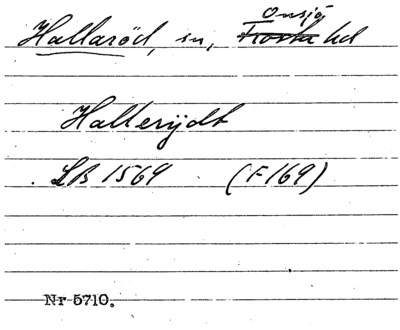 Hallaröd, sn, Onsjö hd
Hallerijdt
LB 1569 (F 169)
Nr 5710.